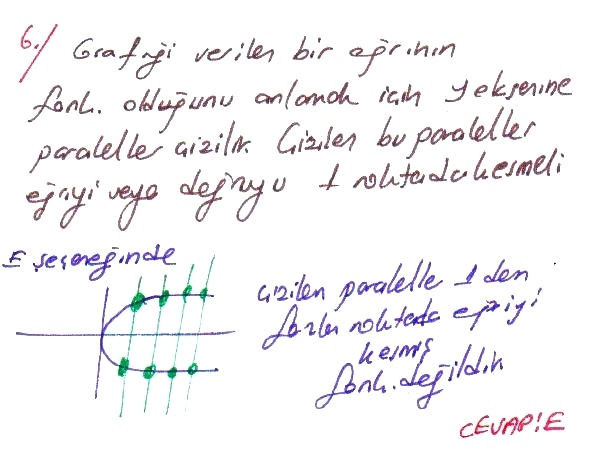 6./ Grafiği verilen bir eğrinin
fonk. olduğunu anlamak için y eksenine
paraleller çizilir. Çizilen bu paraleller
eğriyi veya doğruyu 1 noktada kesmeli
E şeçeneğinde
Çizilen paralelle 1 den
fazla noktada eğriyi
kesmiş
fonk. değildir
CEVAP!E